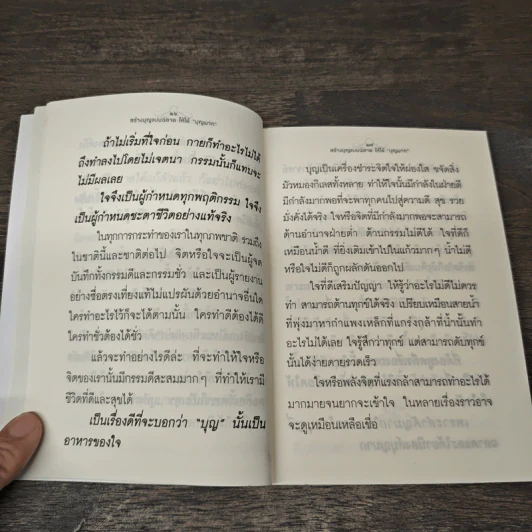 ๑๖
สร้างบุญแบบฉลาด ให้ได้ "บุญมาก"
ถ้าไม่เริ่มที่ใจก่อน กายก็ทำอะไรไม่ได้
ถึงทำลงไปโดยไม่เจตนา กรรมนั้นก็แทบจะ
ไม่มีผลเลย
ใจจึงเป็นผู้กำหนดทุกพฤติกรรม ใจจึง
เป็นผู้กำหนดชะตาชีวิตอย่างแท้จริง
ในทุกการกระทำของเราในทุกภพชาติ รวมถึง
ในชาตินี้และชาติต่อไป จิตหรือใจจะเป็นผู้จด
บันทึกทั้งกรรมดีและกรรมชั่ว และเป็นผู้รายงาน
อย่างซื่อตรงเที่ยงแท้ไม่แปรผันด้วยอำนาจอื่นใด
ใครทำอะไรไว้ก็จะได้ตามนั้น ใครทำดีต้องได้ดี
ใครทำชั่วต้องได้ชั่ว
แล้วจะทำอย่างไรดีล่ะ ที่จะทำให้ใจหรือ
จิตของเรานั้นมีกรรมดีสะสมมากๆ ที่ทำให้เรามี
ชีวิตที่ดีและสุขได้
เป็นเรื่องดีที่จะบอกว่า "บุญ" นั้นเป็น
อาหารของใจ
๑๗
สร้างบุญแบบฉลาด ให้ได้ "บุญมาก"
บุญเป็นเครื่องชำระจิตใจให้ผ่องใส ขจัดสิ่ง
มัวหมองกิเลสทั้งหลาย ทำให้ใจนั้นมีกำลังในฝ่ายดี
มีกำลังมากพอที่จะพาทุกคนไปสู่ความดี สุข รวย
มั่งคั่งได้จริง ใจหรือจิตที่มีกำลังมากพอจะสามารถ
ต้านอำนาจฝ่ายต่ำ ต้านกรรมไม่ดีได้ ใจที่ดีก็
เหมือนน้ำดี ที่ยิ่งเติมเข้าไปในแก้วมากๆ น้ำไม่ดี
หรือใจไม่ดีก็ถูกผลักดันออกไป
ใจที่ดีเสริมปัญญา ให้รู้ว่าอะไรดีไม่ดีควร
ทำ สามารถต้านทุกข์ได้จริง เปรียบเหมือนสายน้ำ
ที่พุ่งมาหากำแพงเหล็กที่แกร่งกล้าที่น้ำนั้นทำ
อะไรไม่ได้เลย ใจรู้สึกว่าทุกข์ แต่สามารถดับทุกข์
นั้นได้ง่ายดายรวดเร็ว
ใจหรือพลังจิตที่แรงกล้าสามารถทำอะไรได้
มากมายจนยากจะเข้าใจ ในหลายเรื่องราวอาจ
จะดูเหมือนเหลือเชื่อ